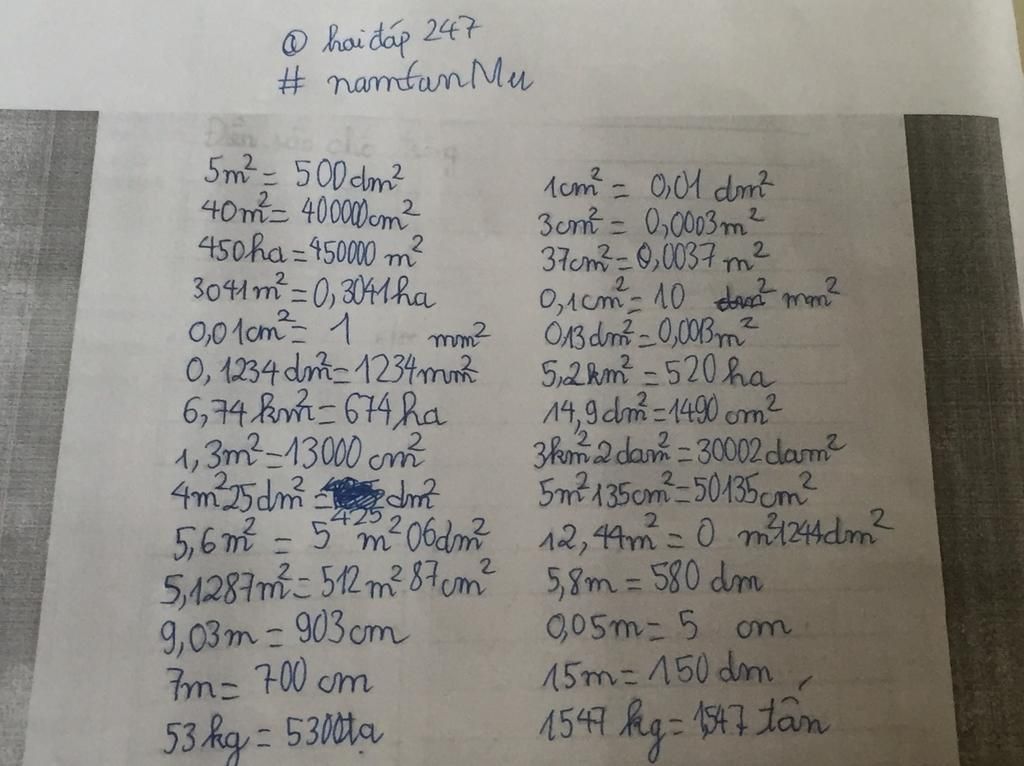 @ hoidáp 247
# namtanMu
5m² = 500dm²
40m² = 400000cm²
450ha = 450000 m²
3041m² = 0,3041ha
0,01cm² = 1 mm²
0,1234dm² = 1234mm²
6,74km² = 674ha
1,3m² = 13000cm²
4m²25dm² = 425 dm²
5,6m² = 5 m²06dm²
5,1287m² = 512m²87cm²
9,03m = 903cm
7m = 700 cm
53kg = 5300tạ
1cm² = 0,01 dm²
3cm² = 0,0003m²
37cm² = 0,0037m²
0,1cm² = 10 mm²
0,13dm² = 0,0013m²
5,2km² = 520ha
14,9dm² = 1490 cm²
3km²2dam² = 30002dam²
5m²135cm² = 50135cm²
12,44m² = 0 m²1244dm²
5,8m = 580 dm
0,05m = 5 cm
15m = 150 dm
1547 kg = 1,547 tấn